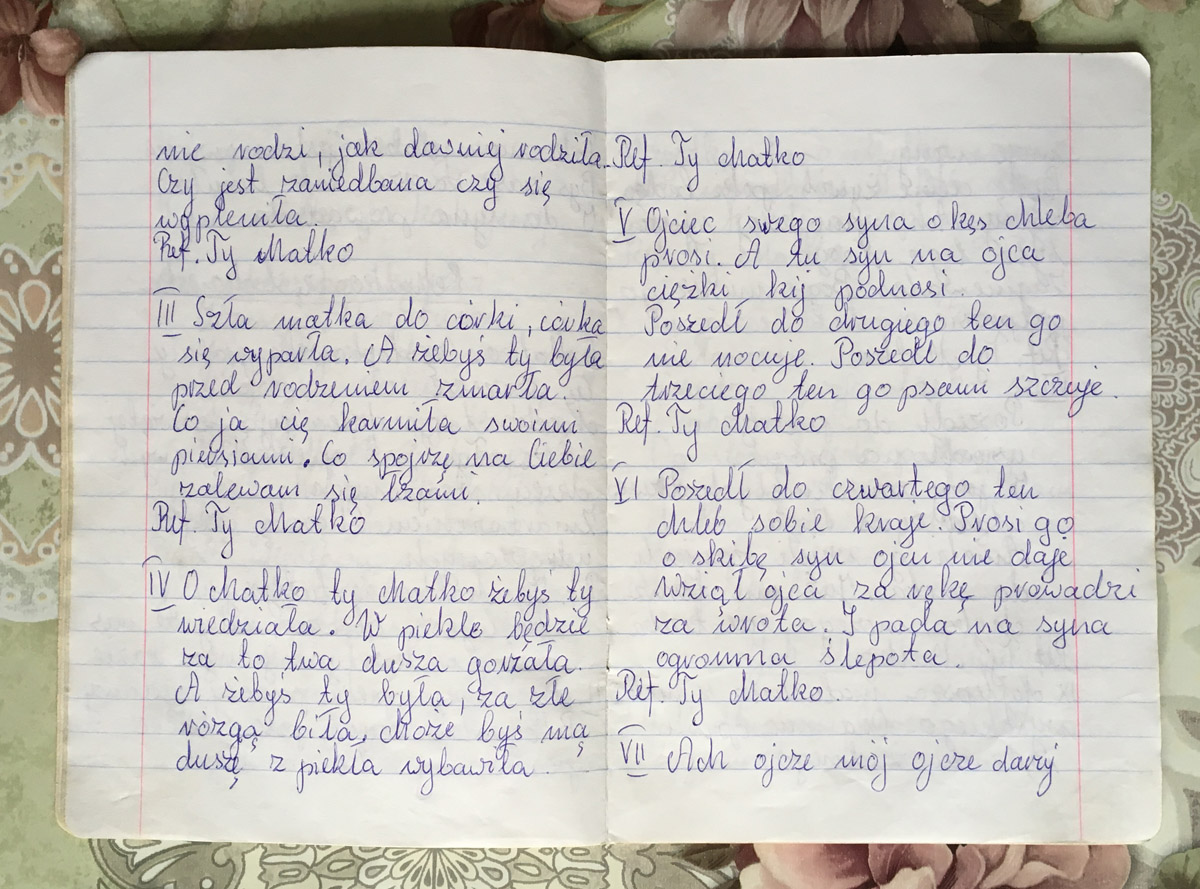 nie rodzi, jak dawniej rodziła.
Czy jest zaniedbana czy się
wypleniła.
Ref. Ty Matko
III Szła matka do córki, córka
się wyparła. A żebyś ty była
przed rodzeniem zmarła.
Co ja cię karmiła swoimi
piersiami. Co spojrzę na Ciebie
zalewam się łzami.
Ref. Ty Matko
IV O Matko ty Matko żebyś ty
wiedziała. W piekle będzie
za to twa dusza gorzała.
A żebyś ty była, za złe
rózgą biła, może byś mą
duszę z piekła wybawiła.
Ref. Ty Matko
V Ojciec swego syna o kęs chleba
prosi. A tu syn na ojca
ciężki kij podnosi.
Poszedł do drugiego ten go
nie nocuje. Poszedł do
trzeciego ten go psami szczuje.
Ref. Ty Matko
VI Poszedł do czwartego ten
chleb sobie kraje. Prosi go
o skibę syn ojcu nie daje
Wziął ojca za rękę prowadzi
za wrota. I pada na syna
ogromna ślepota.
Ref. Ty Matko.
VII Ach ojcze mój ojcze daruj